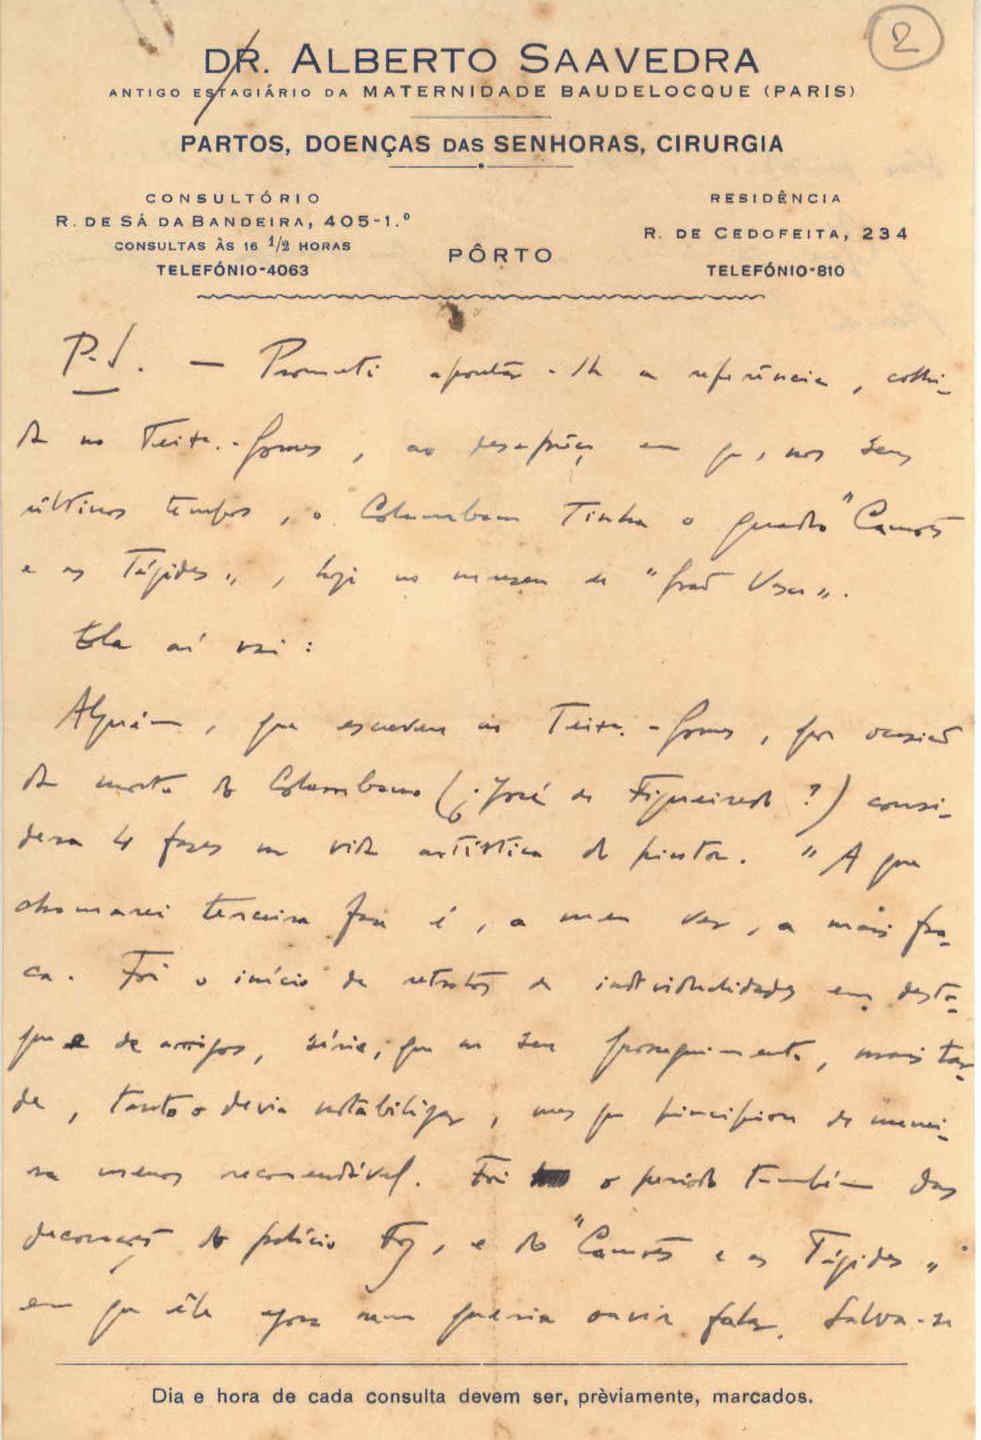 2
DR. ALBERTO SAAVEDRA
ANTIGO ESTAGIÁRIO DA MATERNIDADE BAUDELOCQUE (PARIS)
PARTOS, DOENÇAS DAS SENHORAS, CIRURGIA
CONSULTÓRIO
R. DE SÁ DA BANDEIRA, 405-1.º
CONSULTAS ÀS 16 1/2 HORAS
TELEFÓNIO-4063
PÔRTO
RESIDÊNCIA
R. DE CEDOFEITA, 234
TELEFÓNIO-810
P.S. — Prometi apontar-lhe a referência, colhi-
da no Teix.-Gomes, ao desaprêço em que, nos seus
últimos tempos, o Columbano tinha o quadro "Camões
e as Tágides", hoje no museu de "Grão Vasco".
Ela aí vai:
Alguém, que escreveu ao Teix.-Gomes, por ocasião
da morte do Columbano (¿José de Figueiredo?) consi-
dera 4 fases na vida artística do pintor. "A que
chamarei terceira fase é, a meu ver, a mais fra-
ca. Foi o início de retratos de individualidades em desta-
que e de amigos, série, que no seu prosseguimento, mais tar-
de, tanto o devia notabilizar, mas que principiou de manei-
ra menos recomendável. Foi o período também das
decorações do palácio Foz, e do "Camões e as Tágides"
em que êle agora nem queria ouvir falar. Salva-se
Dia e hora de cada consulta devem ser, prèviamente, marcados.